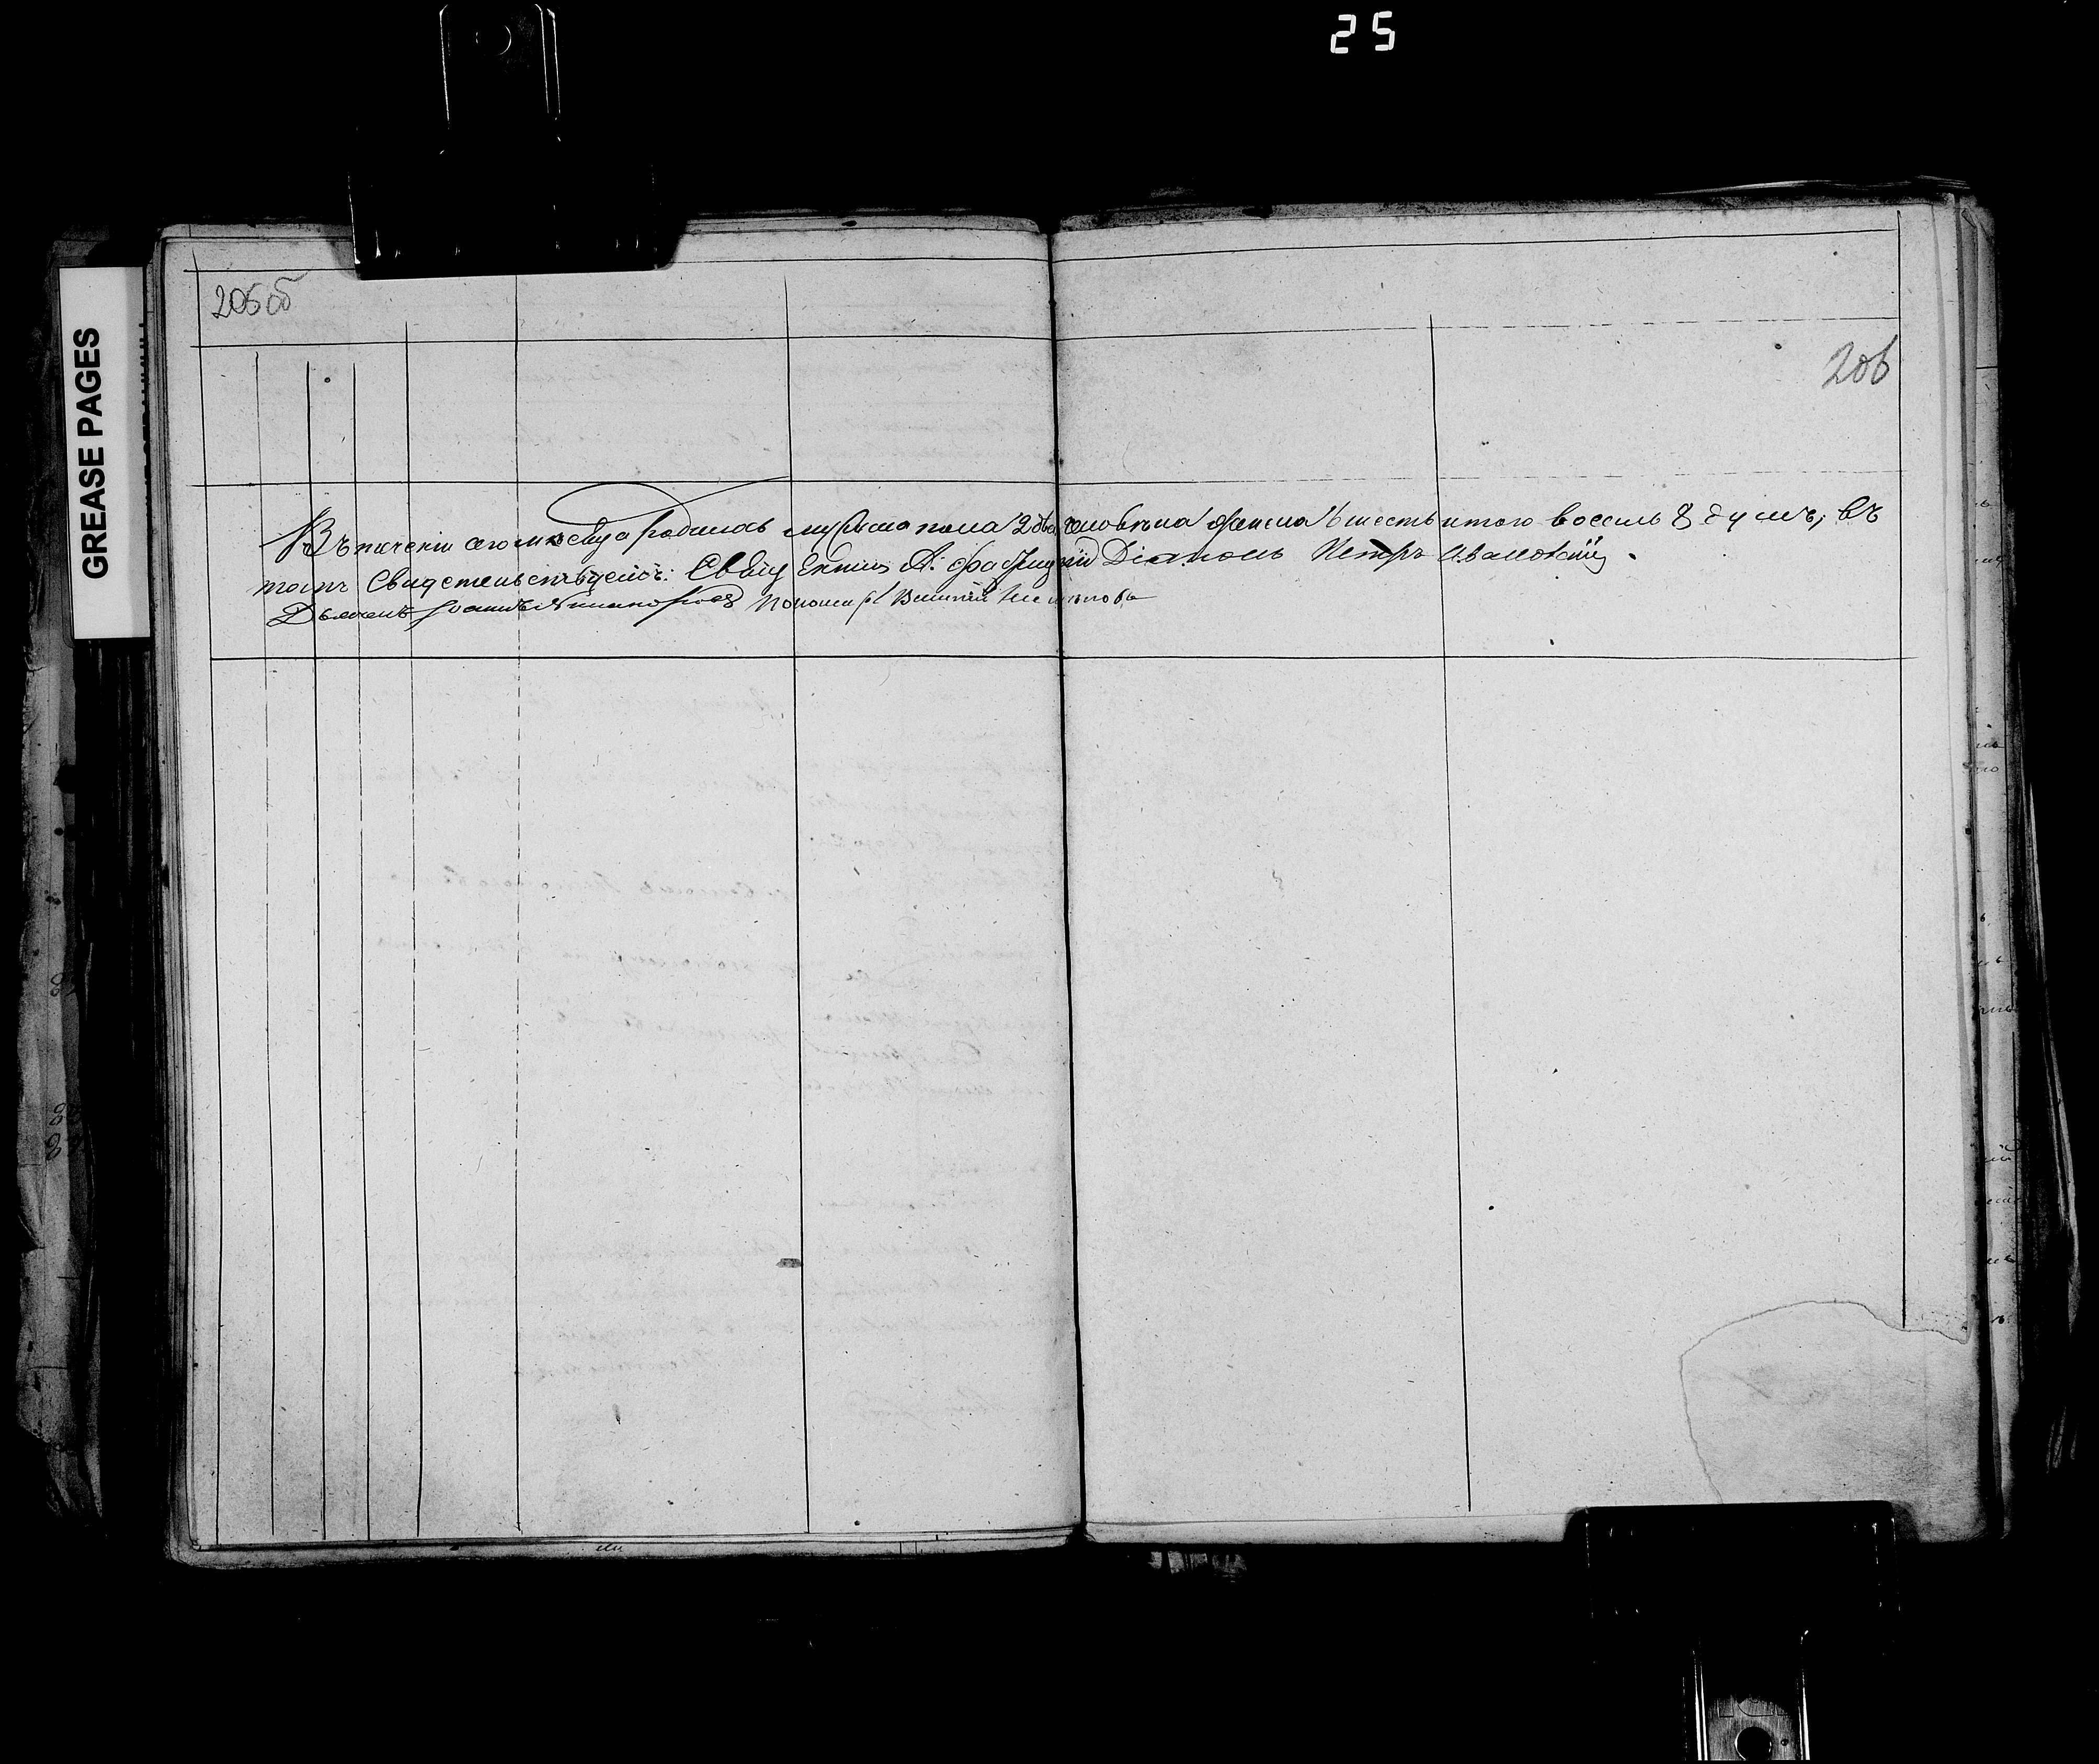 25
GREASE PAGES
205 об
206
Въ теченіи сего месяца родилось мужска пола 2 два человѣка женска 6 шесть итого восемь 8 душъ; въ
томъ свидетельствуемъ: Свящ Діаконъ Петръ
Дьячекъ Іоаннъ Пономарь